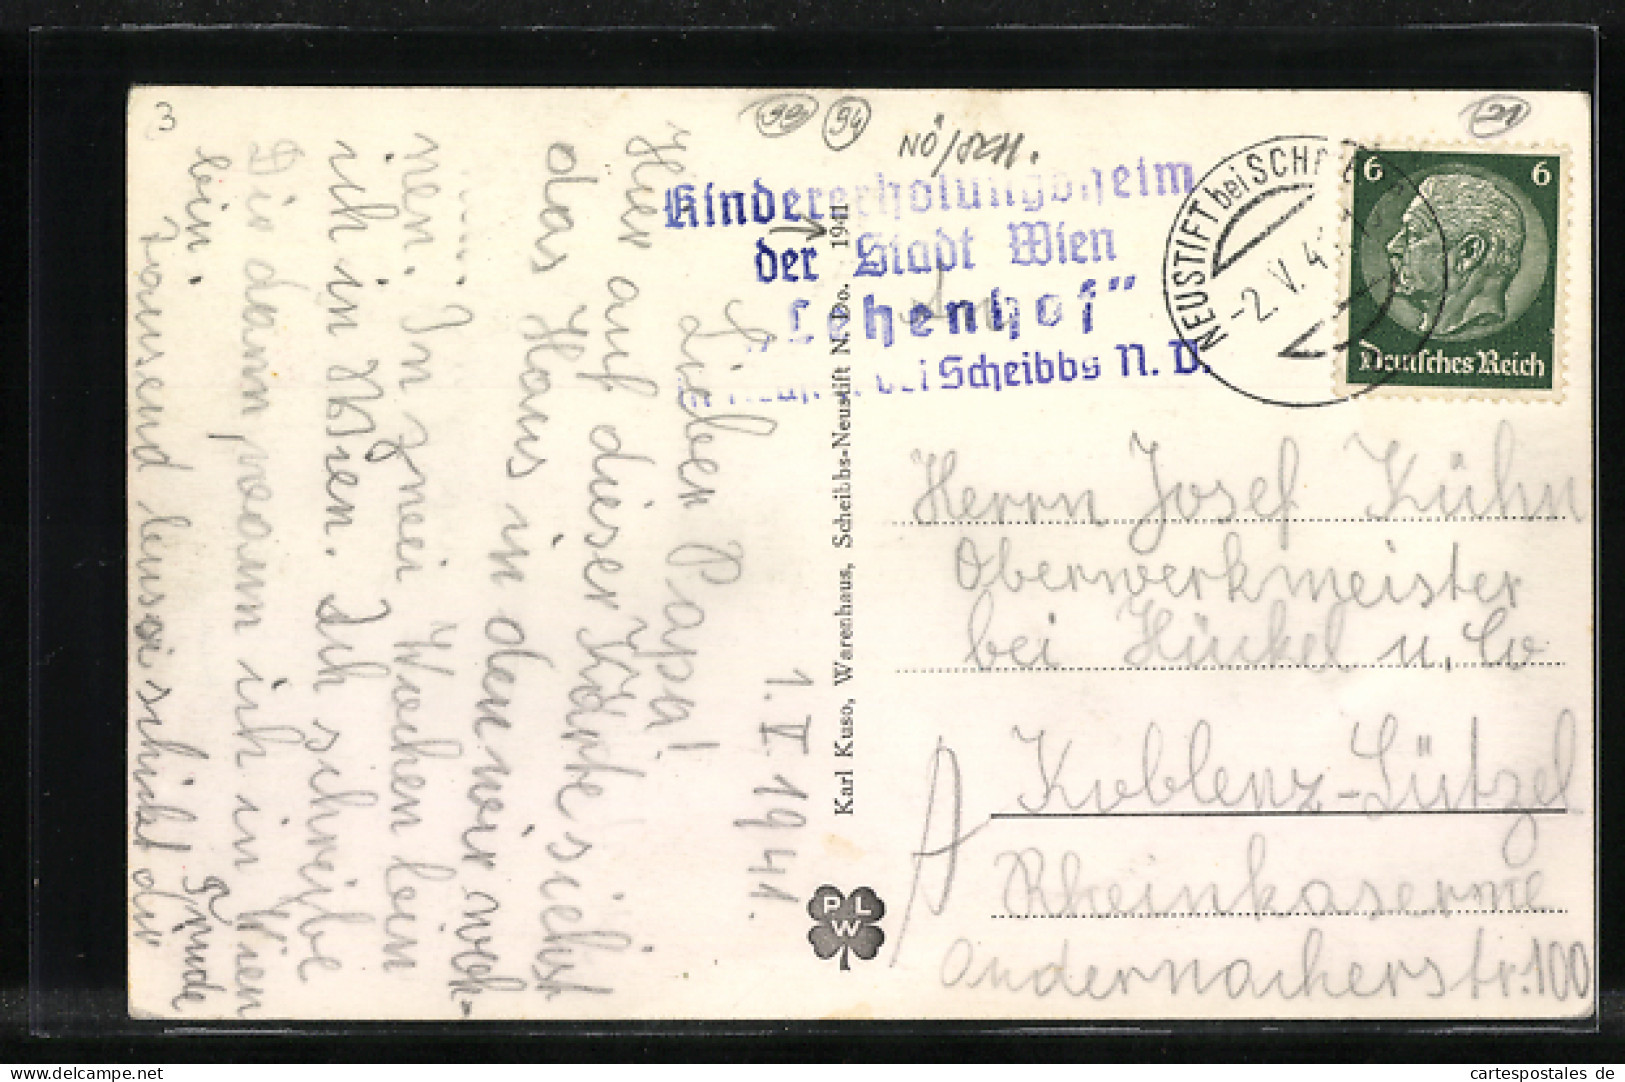 3
94
21
NÖ/SCH.
Kindererholungsheim
der Stadt Wien
„Lehenhof“
bei Scheibbs N. D.
NEUSTIFT bei SCH
-2. V. 4
6 6
Deutsches Reich
1. V 1941.
Lieber Papa!
Hier auf dieser Karte siehst
das Haus in dem wir woh-
nen. In zwei Wochen bin
ich in Wien. Ich schreibe
Dir dann, wann ich in Wien
bin.
Tausend Bussi schickt dir
Trude
Karl Kuso, Warenhaus, Scheibbs-Neustift N. Do. 1941
PLW
Herrn Josef Kühn
Oberwerkmeister
bei Hückel u. Co
Koblenz-Lützel
Rheinkaserne
Andernacherstr. 100
cartespostales de
delcampe.net
cartespostales de